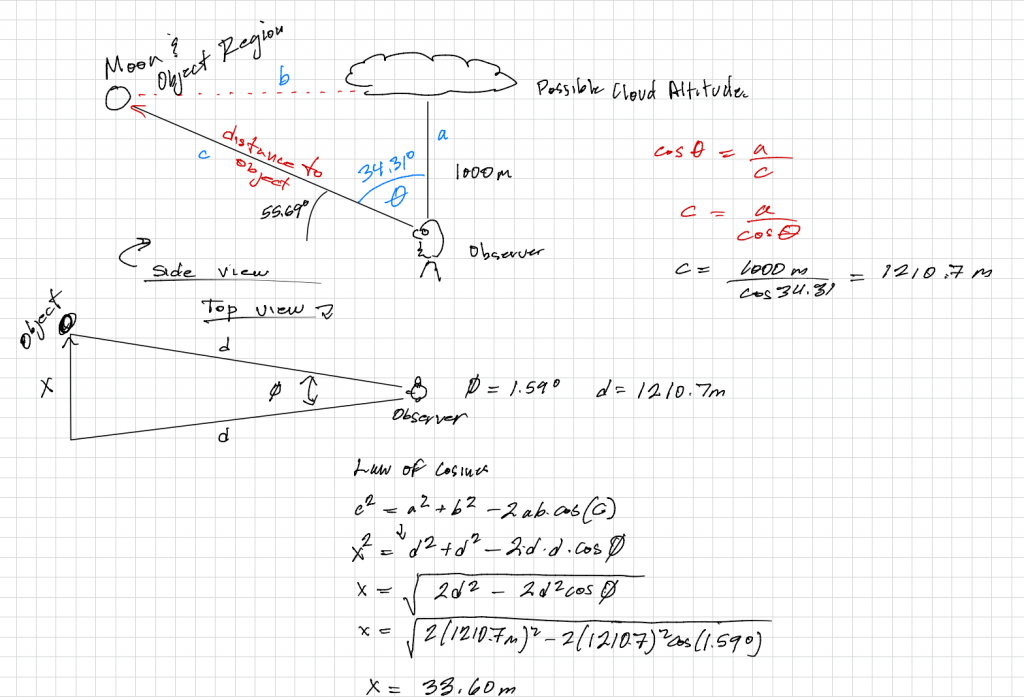 Moon & Object Region
b
Possible Cloud Altitude
a
distance to object
c
34.31°
θ
1000m
55.69°
Observer
cos θ = a/c
c = a/cos θ
c = 1000 m/cos 34.31 = 1210.7 m
Side view
Top view
Object
d
x
ϕ
Observer
ϕ = 1.59° d = 1210.7m
d
Law of Cosines
c² = a² + b² - 2ab·cos(C)
x² = d² + d² - 2·d·d·cos ϕ
x = √2d² - 2d²cos ϕ
x = √2(1210.7m)² - 2(1210.7)²cos(1.59°)
x = 33.60m